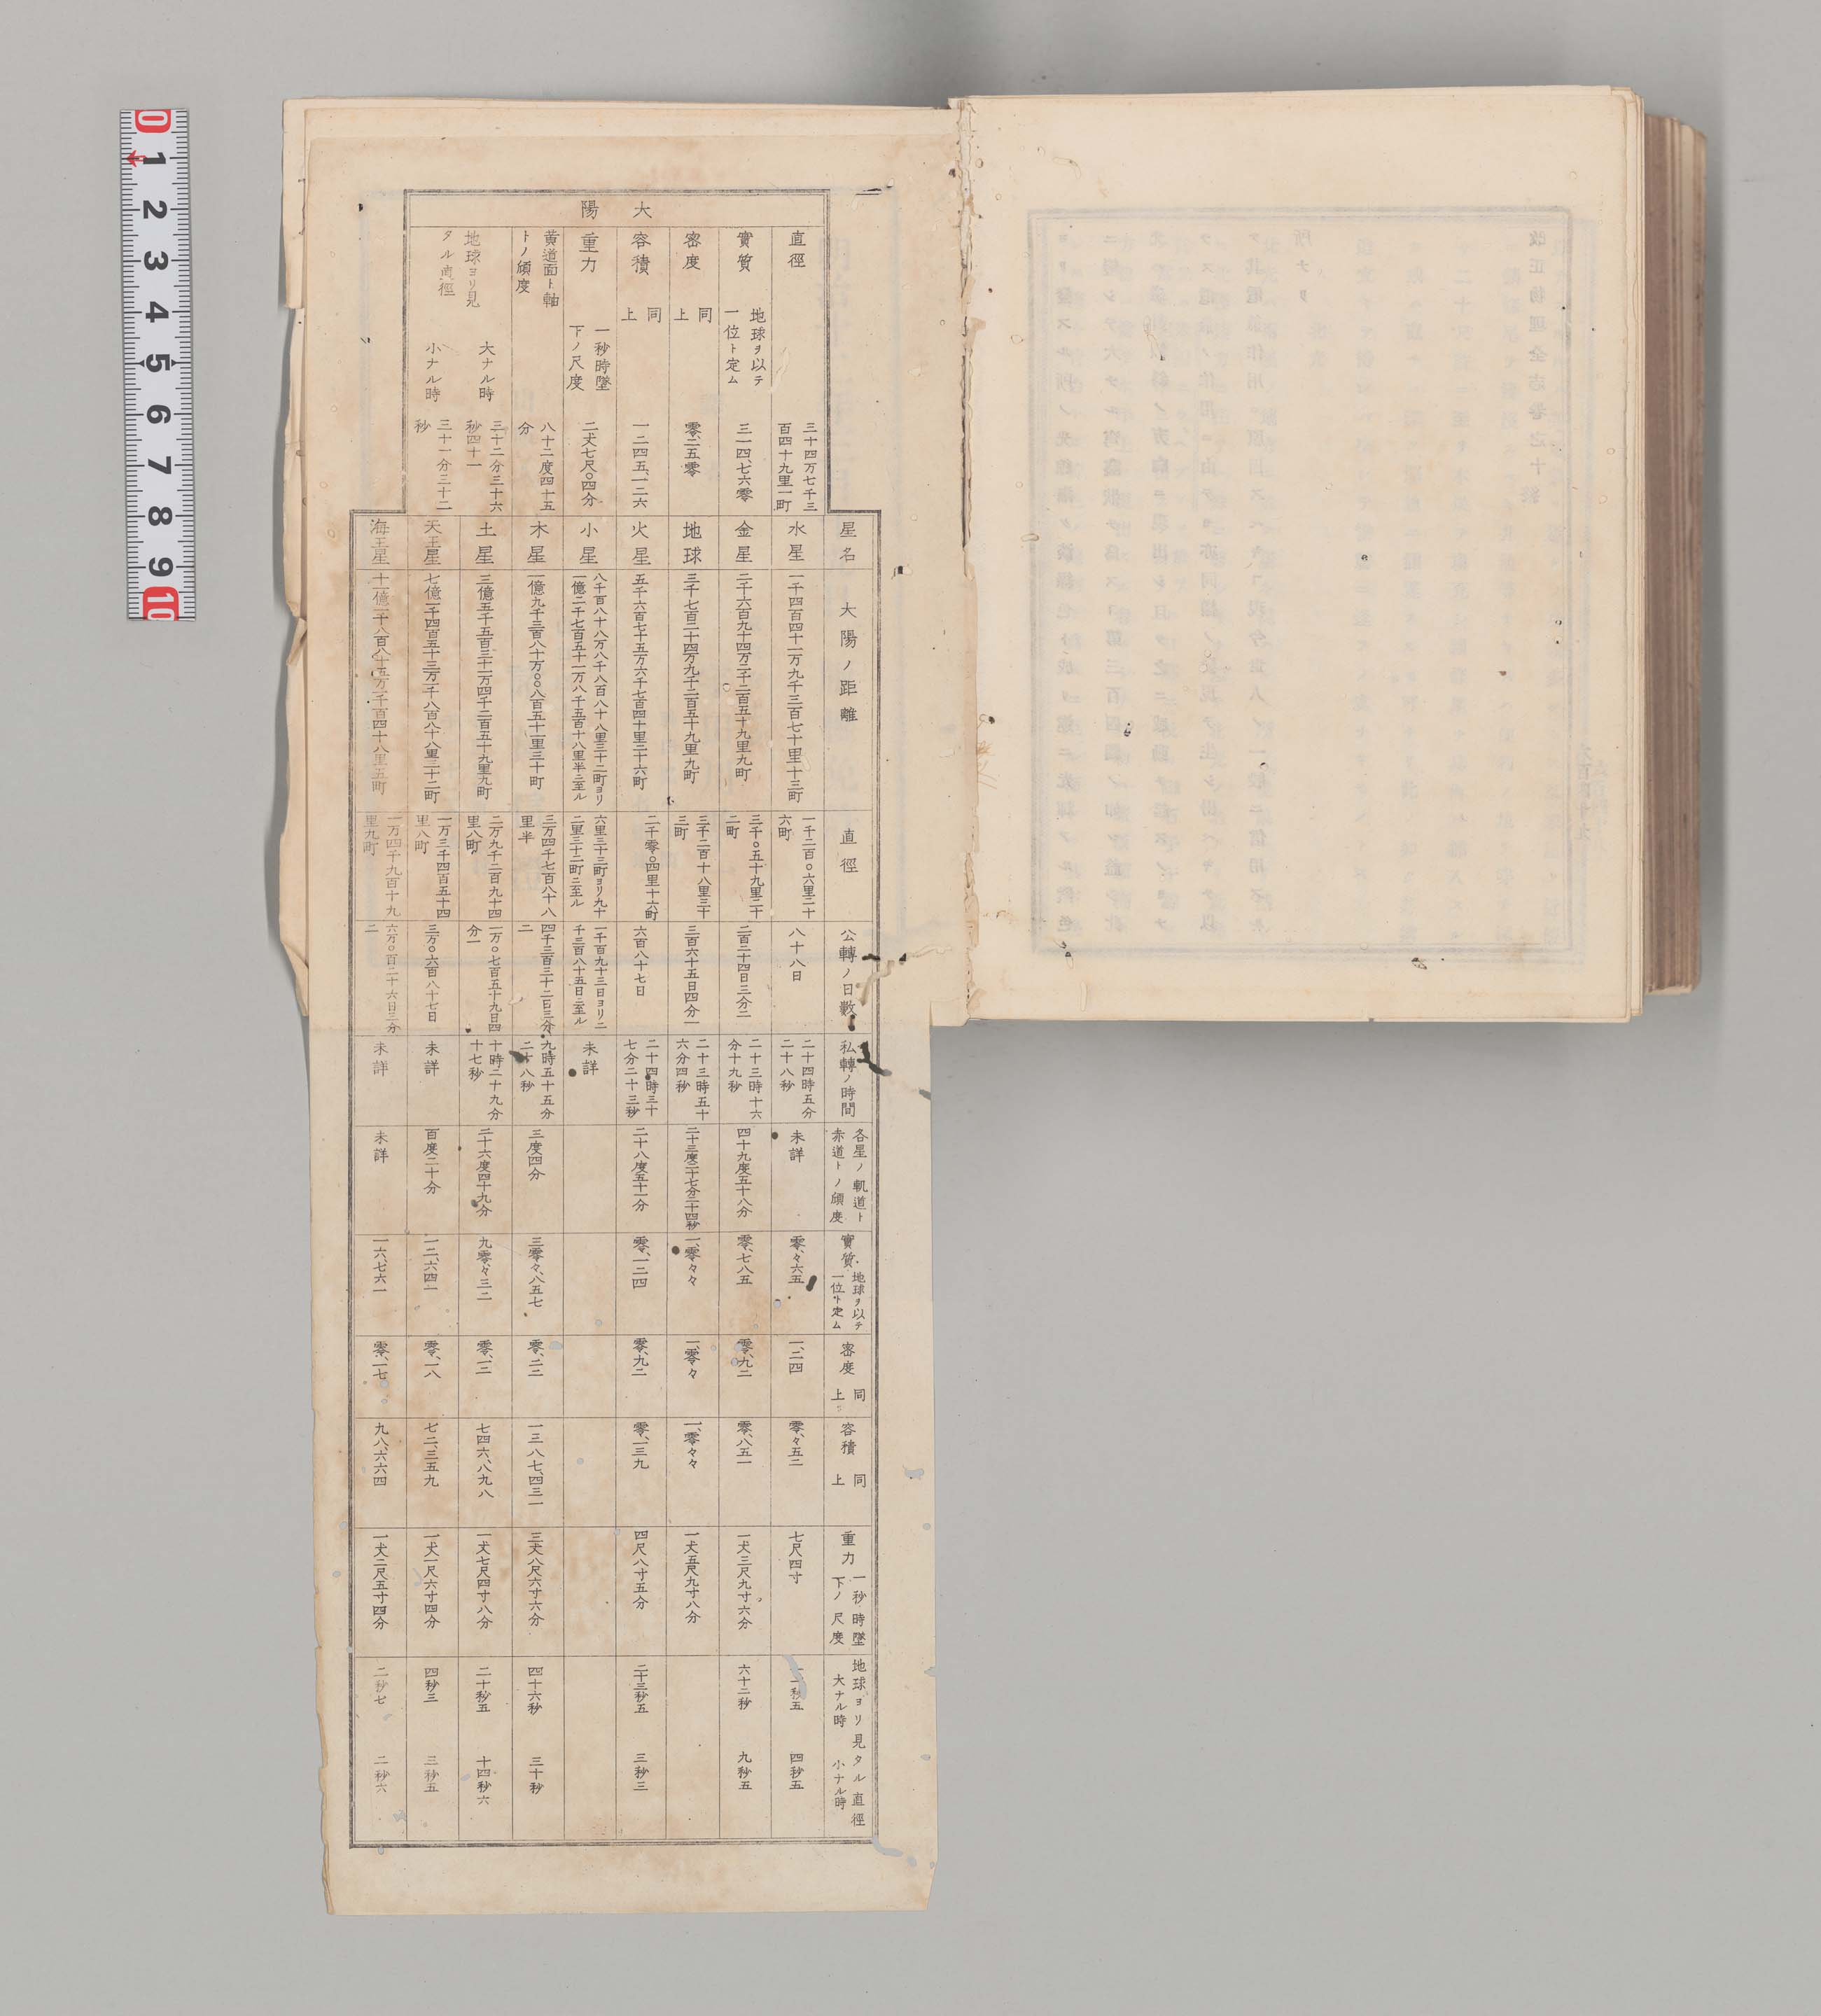 大陽
直徑
三十四万七千三
百四十九里一町
實質
地球ヲ以テ
一位ト定ム
三一四、七六零
密度
同上
零、二五零
容積
同上
一二四五、一二六
重力
一秒時墜
下ノ尺度
二丈七尺〇四分
黃道面ト軸
トノ傾度
八十二度四十五
分
地球ヨリ見
タル直徑
大ナル時
三十二分三十六
秒四十一
小ナル時
三十一分三十二
秒
星名
大陽ノ距離
直徑
公轉ノ日數
私轉ノ時間
各星ノ軌道ト
赤道トノ傾度
實質
地球ヲ以テ
一位ト定ム
密度
同上
容積
同上
重力
一秒時墜
下ノ尺度
地球ヨリ見タル直徑
大ナル時
小ナル時
水星
一千四百四十一万九千三百七十里十三町
一千二百〇六里二十
六町
八十八日
二十四時五分
二十八秒
未詳
零、々六五
一、二四
零、々五二
七尺四寸
秒五
四秒五
金星
二千六百九十四万二千二百五十九里九町
三千〇五十九里二十
二町
二百二十四日三分二
二十三時十六
分十九秒
四十九度五十八分
零、七八五
零、九二
零、八五一
一丈三尺九寸六分
六十二秒
九秒五
地球
三千七百二十四万九千二百五十九里九町
三千二百十八里三十
三町
三百六十五日四分一
二十三時五十
六分四秒
二十三度二十七分二十四秒
一、零々々
一、零々
一、零々々
一丈五尺九寸八分
火星
五千六百七十五万六千七百四十里二十六町
二千零〇四里十六町
六百八十七日
二十四時三十
七分二十三秒
二十八度五十一分
零、一二四
零、九二
零、一三九
四尺八寸五分
二十三秒五
三秒三
小星
八千百八十八万八千八百八十八里三十二町ヨリ
一億二千七百五十一万八千五百十八里半ニ至ル
六里三十三町ヨリ九十
二里三十二町ニ至ル
一千百九十三日ヨリ二
千三百八十五日ニ至ル
未詳
木星
一億九千三百八十万〇〇八百五十一里三十町
三万四千七百八十八
里半
四千三百三十二日三分
二
九時五十五分
二十八秒
三度四分
三零々、八五七
零、二二
一三八七、四三一
三丈八尺六寸六分
四十六秒
三十秒
土星
三億五千五百三十一万四千二百五十九里九町
二万九千二百九十四
里八町
一万〇七百五十九日四
分一
十時二十九分
十七秒
二十六度四十九分
九零、々三二
零、一二
七四六、八九八
一丈七尺四寸八分
二十秒五
十四秒六
天王星
七億一千四百五十三万一千八百八十八里三十二町
一万三千四百五十四
里八町
三万〇六百八十七日
未詳
百度二十分
一二、六四一
零、一八
七二、三五九
一丈一尺六寸四分
四秒三
三秒五
海王星
十一億一千八百八十五万一千百四十八里五町
一万四千九百十九
里九町
六万〇百二十六日三分
二
未詳
未詳
一六、七六一
零、一七
九八、六六四
一丈二尺五寸四分
二秒七
二秒六